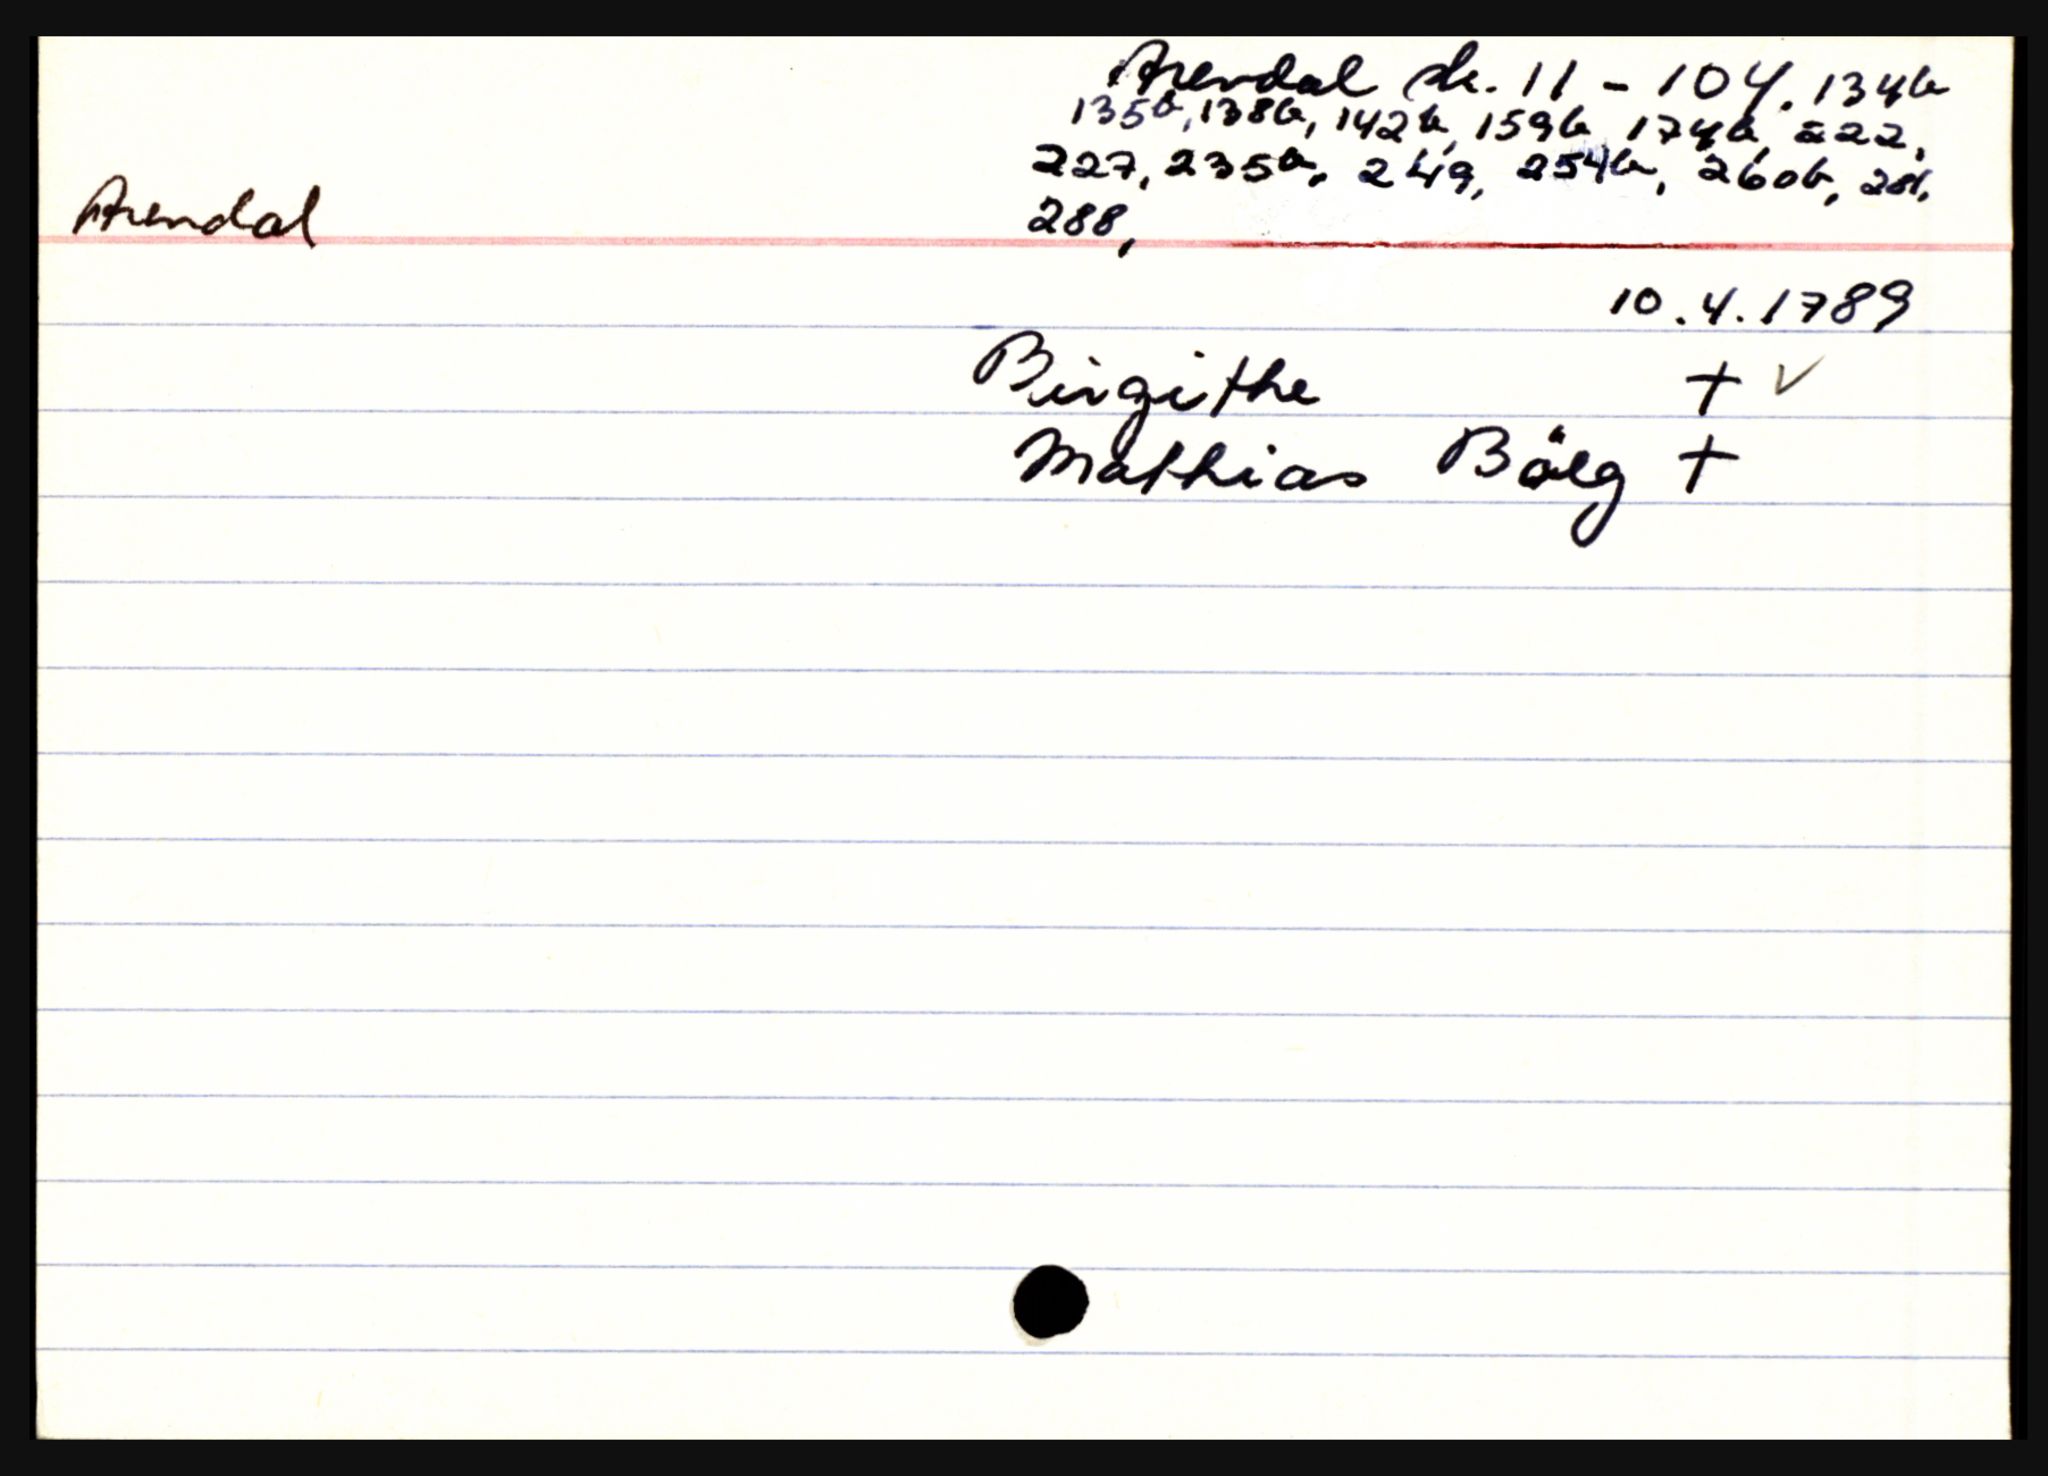 Arendal sk. 11 - 104. 134b
135b, 138b, 142b, 159b, 174b, 222,
227, 235b, 249, 254b, 260b, 281,
288,
Arendal
10.4.1789
Birgithe + ✓
Mathias Bölg +